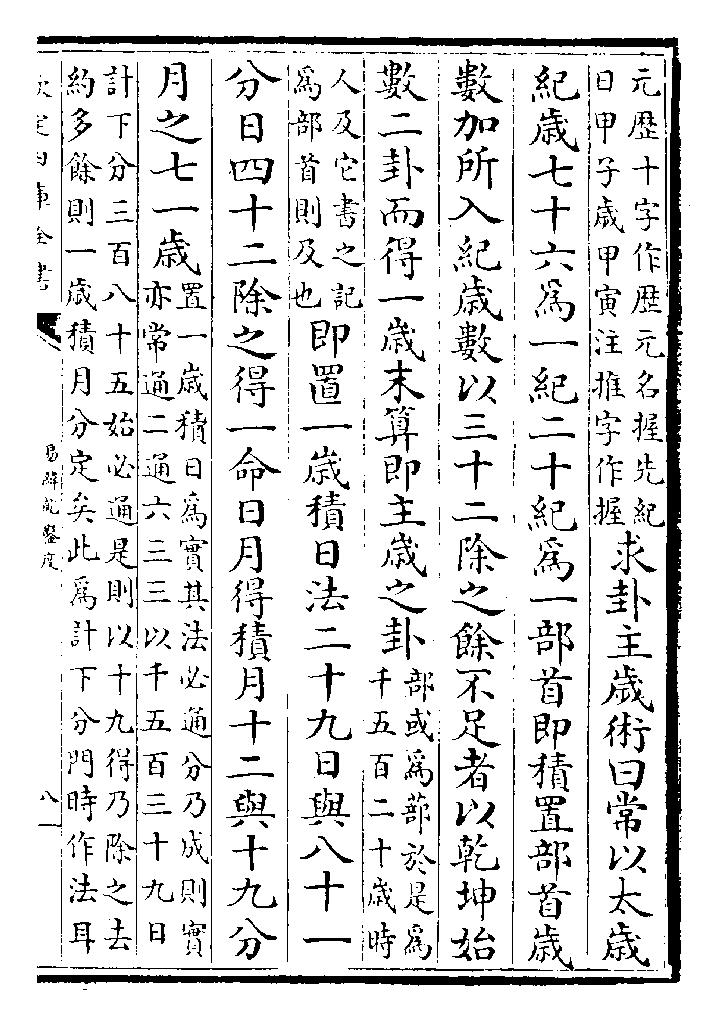 元歴十字作歴元名握先紀
日甲子歲甲寅注推字作握
求卦主歲術曰常以太歲
紀歲七十六為一紀二十紀為一部首即積置部首歲
數加所入紀歲數以三十二除之餘不足者以乾坤始
數二卦而得一歲末算即主歲之卦
部或為蔀於是為
千五百二十歲時
人及它書之記
為部首則及也
即置一歲積日法二十九日與八十一
分日四十二除之得一命日月得積月十二與十九分
月之七一歲
置一歲積日為實其法必通分乃成則實
亦常通二通六三三以千五百三十九日
計下分三百八十五始必通是則以十九得乃除之去
約多餘則一歲積月分定矣此為計下分門時作法耳
欽定四庫全書
易解乾鑿度
八一